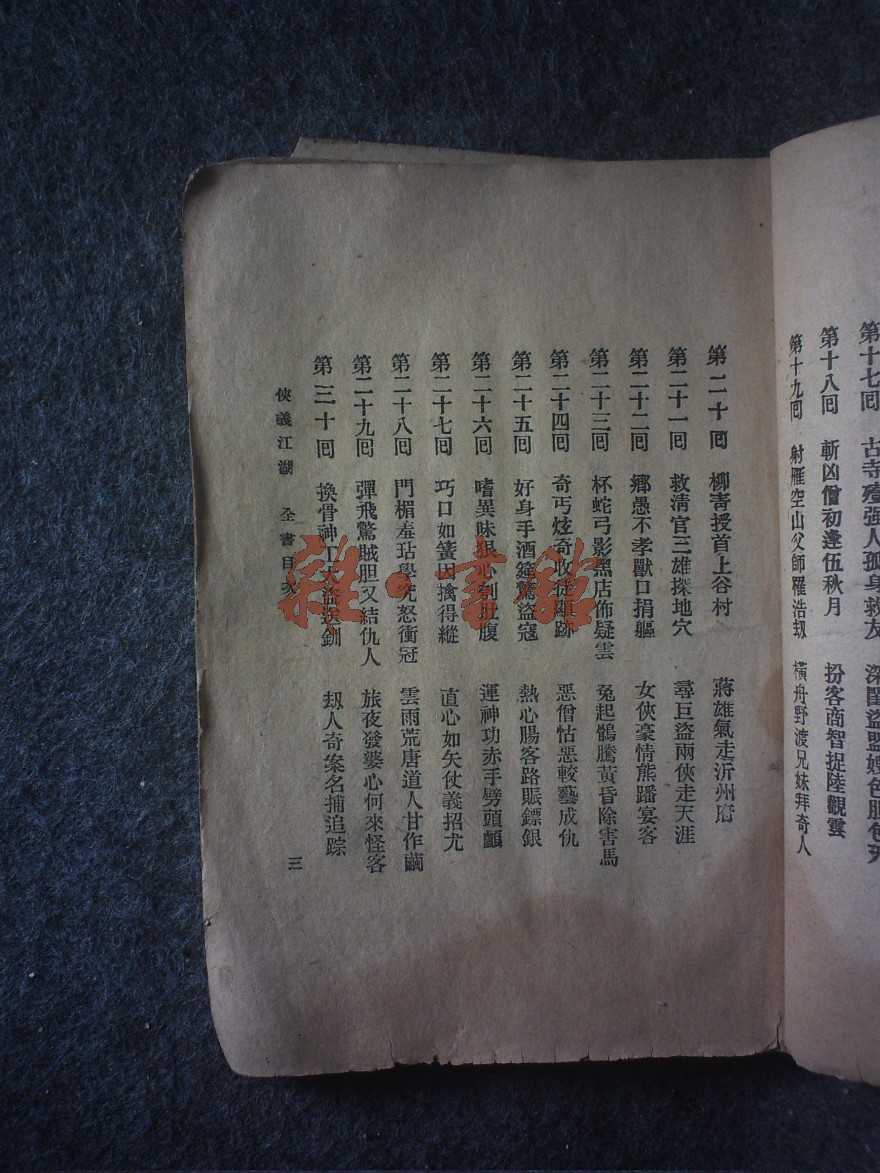 第十七回　古寺殪强人孤身救友　深閨盜盟嫂色胆包天
第十八回　斬凶僧初逢伍秋月　扮客商智捉陸觀雲
第十九回　射雁空山父師罹浩刼　橫舟野渡兄妹拜奇人
第二十回　柳青授首上谷村　蔣雄氣走沂州府
第二十一回　救清官三雄探地穴　尋巨盜兩俠走天涯
第二十二回　鄉愚不孝獸口捐軀　女俠豪情熊蹯宴客
第二十三回　杯蛇弓影黑店佈疑雲　兔起鶻騰黃昏除害馬
第二十四回　奇丐炫奇收徒顯跡　惡僧怙惡較藝成仇
第二十五回　好身手酒筵驚盜寇　熱心腸客路賑鏢銀
第二十六回　嗜異味狠心刳肚腹　運神功赤手劈頭顱
第二十七回　巧口如簧因擒得縱　直心如矢仗義招尤
第二十八回　門楣羞玷學究怒衝冠　雲雨荒唐道人甘作繭
第二十九回　彈飛驚賊胆又結仇人　旅夜發婆心何來怪客
第三十回　換骨神工大盜送釧　刼人奇案名捕追踪
俠義江湖　全書目次　三
雜·書館